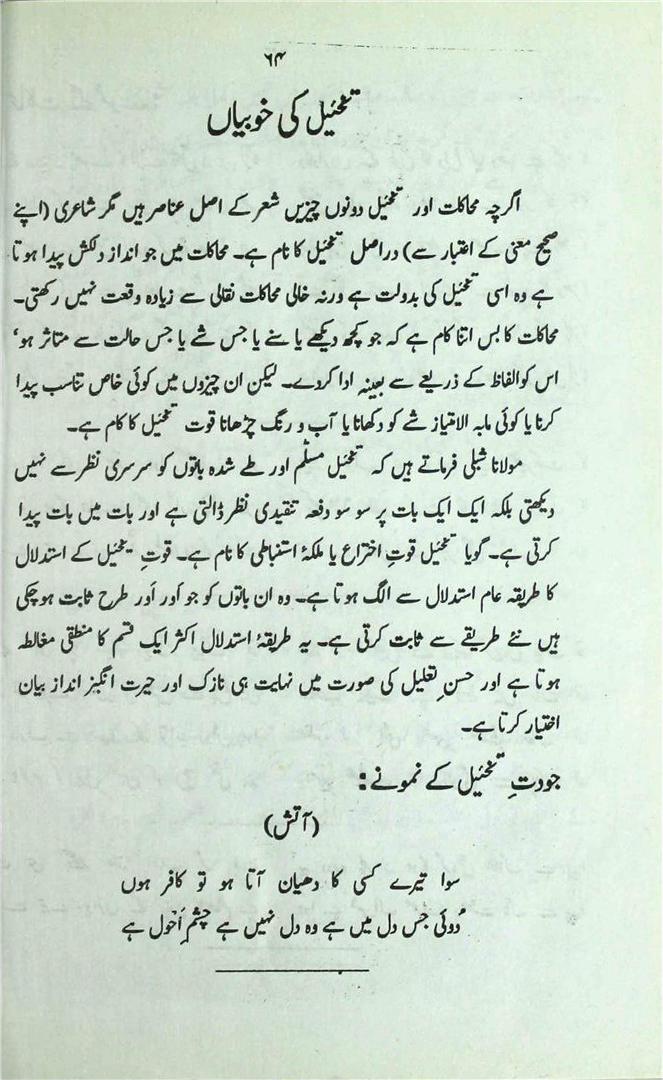 ۶۴
تخئیل کی خوبیاں
اگرچہ محاکات اور تخئیل دونوں چیزیں شعر کے اصل عناصر ہیں مگر شاعری (اپنے
صحیح معنی کے اعتبار سے) دراصل تخئیل کا نام ہے۔ محاکات میں جو انداز دلکش پیدا ہوتا
ہے وہ اسی تخئیل کی بدولت ہے ورنہ خالی محاکات نقالی سے زیادہ وقعت نہیں رکھتی۔
محاکات کا بس اتنا کام ہے کہ جو کچھ دیکھے یا سنے یا جس شے یا جس حالت سے متاثر ہو،
اس کو الفاظ کے ذریعے سے بعینہ ادا کردے۔ لیکن ان چیزوں میں کوئی خاص تناسب پیدا
کرنا یا کوئی مابہ الامتیاز شے کو دکھانا یا آب و رنگ چڑھانا قوت تخئیل کا کام ہے۔
مولانا شبلی فرماتے ہیں کہ تخئیل مسلّم اور طے شدہ باتوں کو سرسری نظر سے نہیں
دیکھتی بلکہ ایک ایک بات پر سو سو دفعہ تنقیدی نظر ڈالتی ہے اور بات میں بات پیدا
کرتی ہے۔ گویا تخئیل قوتِ اختراع یا ملکۂ استنباطی کا نام ہے۔ قوتِ تخئیل کے استدلال
کا طریقہ عام استدلال سے الگ ہوتا ہے۔ وہ ان باتوں کو جو اَور اَور طرح ثابت ہوچکی
ہیں نئے طریقے سے ثابت کرتی ہے۔ یہ طریقۂ استدلال اکثر ایک قسم کا منطقی مغالطہ
ہوتا ہے اور حسنِ تعلیل کی صورت میں نہایت ہی نازک اور حیرت انگیز انداز بیان
اختیار کرتا ہے۔
جودتِ تخئیل کے نمونے:
(آتش)
سوا تیرے کسی کا دھیان آتا ہو تو کافر ہوں
دُوئی جس دل میں ہے وہ دل نہیں ہے چشمِ اَحْول ہے